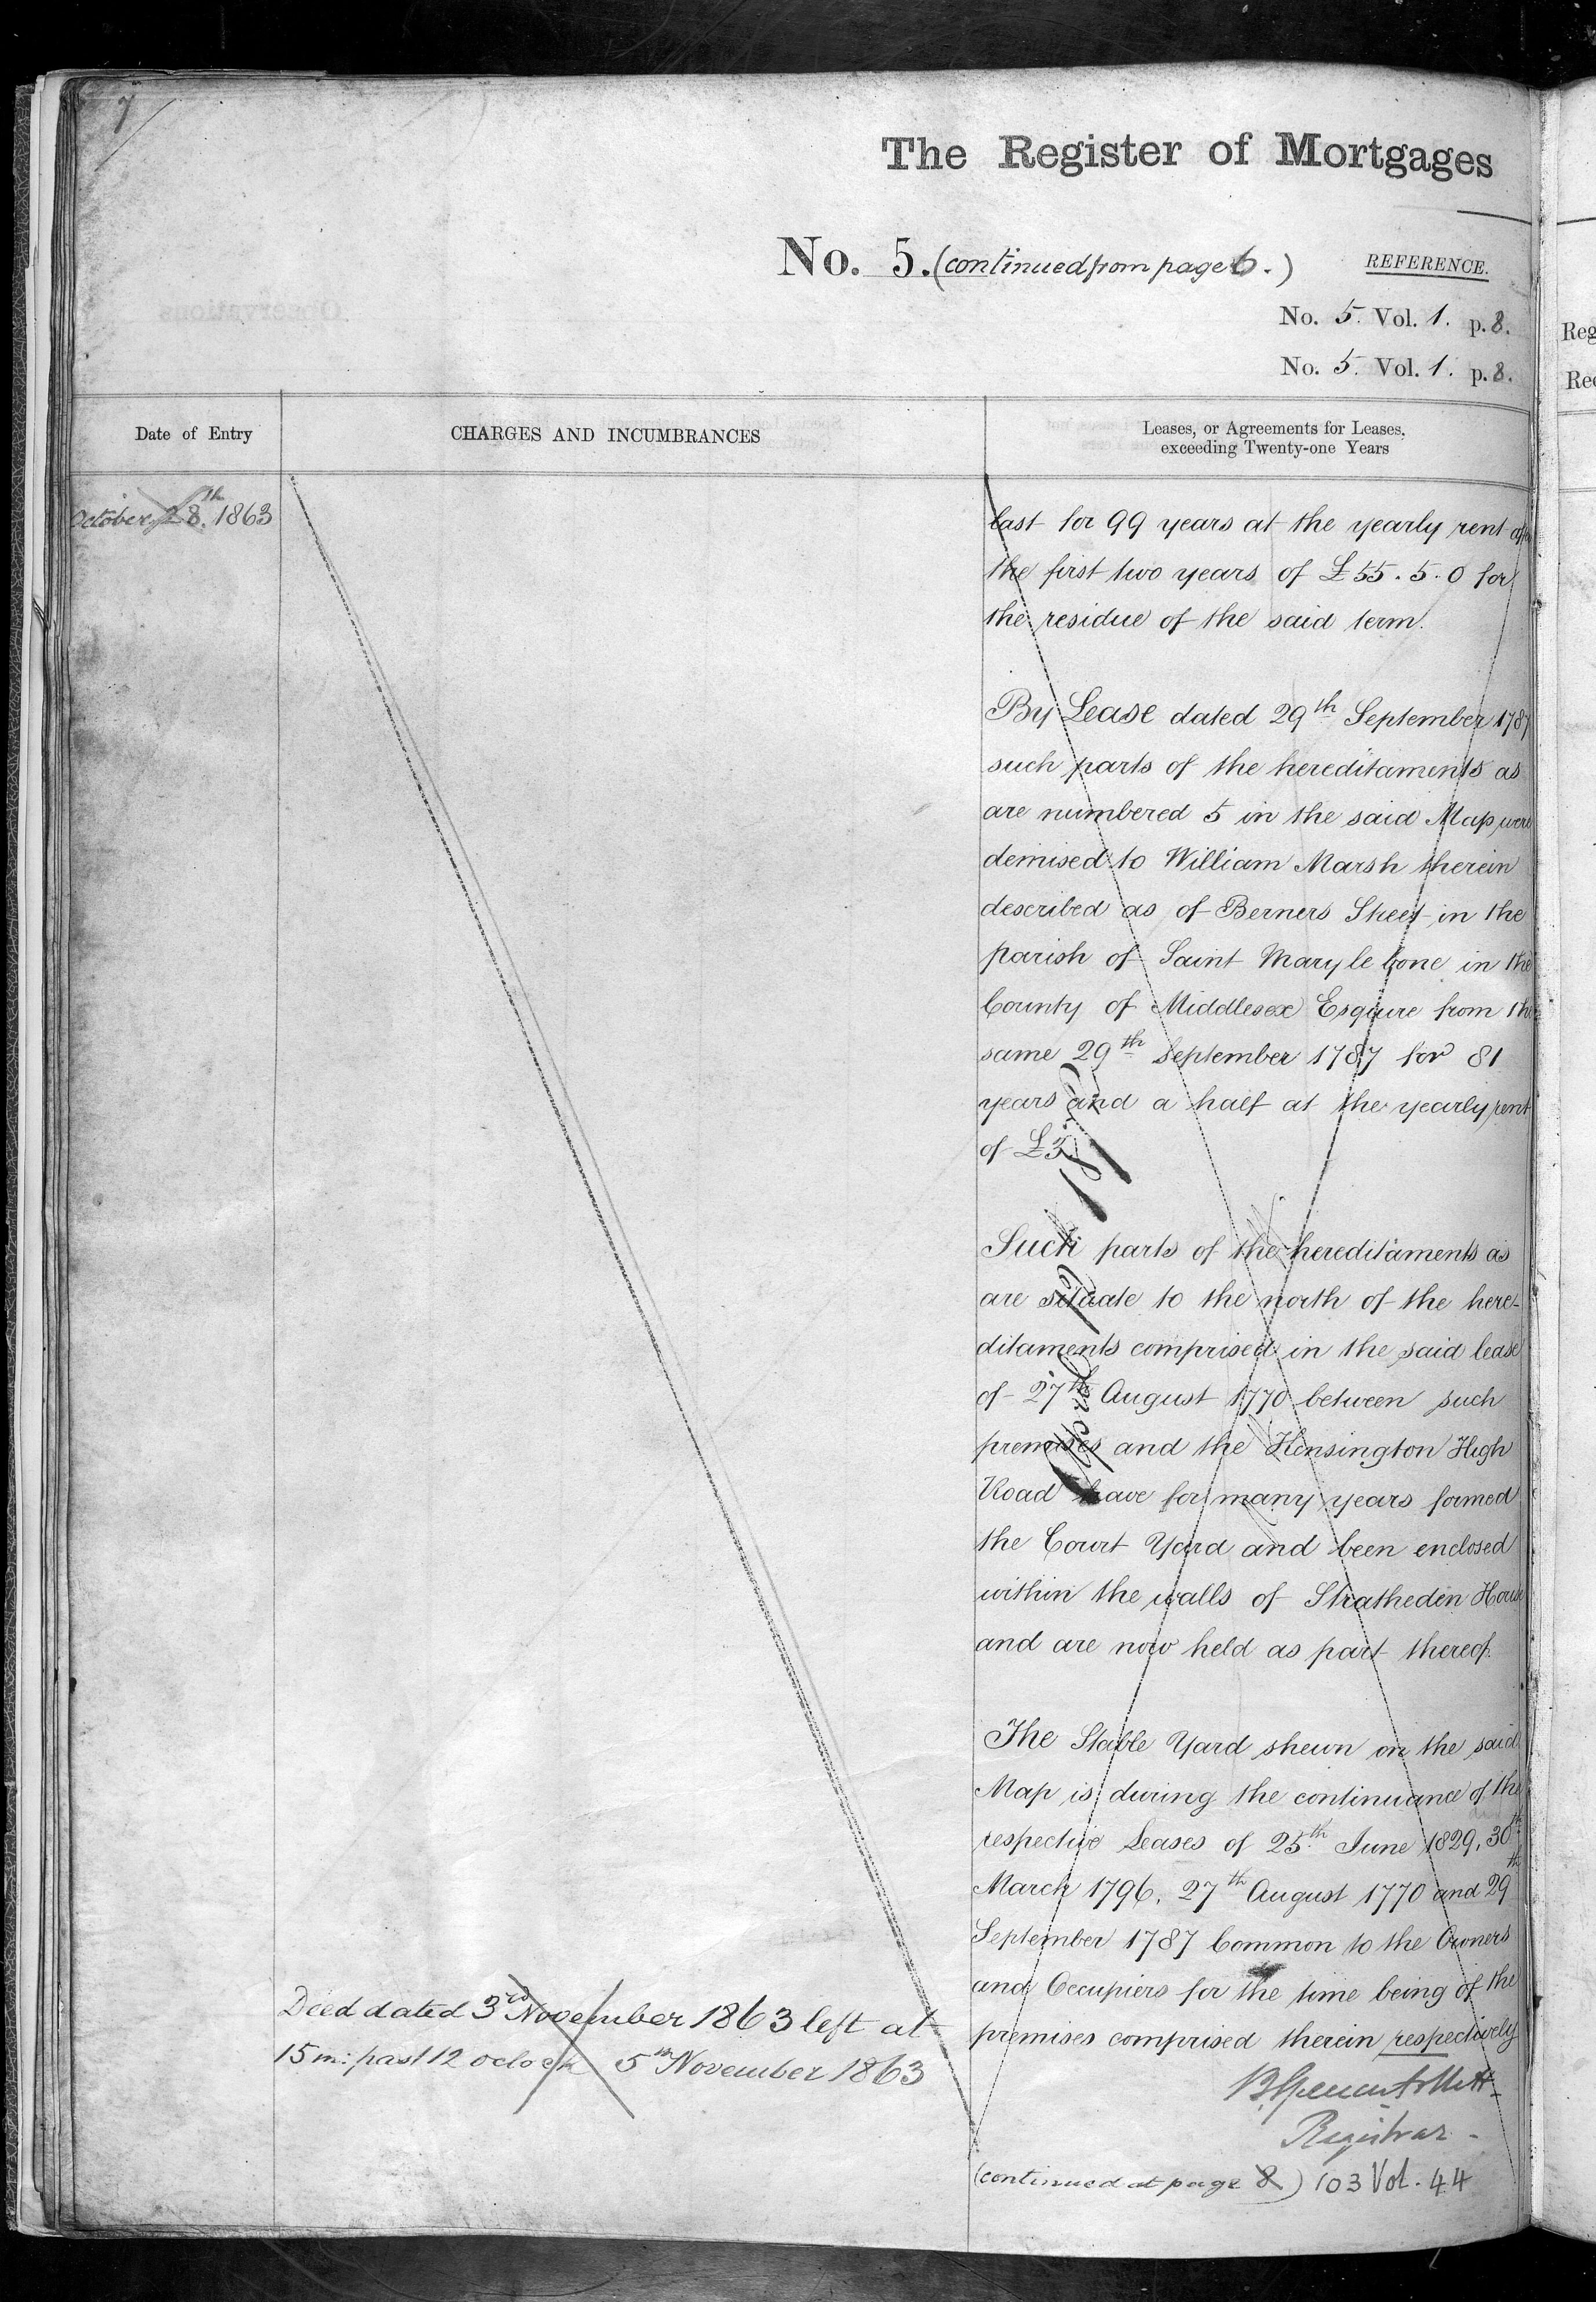 7
The Register of Mortgages
No. 5. (continued from page 6.)
REFERENCE.
No. 5. Vol. 1. p. 8.
No. 5. Vol. 1. p. 8.
Reg
Date of Entry
CHARGES AND INCUMBRANCES
Leases, or Agreements for Leases,
exceeding Twenty-one Years
October 28th. 1863
last for 99 years at the yearly rent
the first two years of £55.5.0 for
the residue of the said term.
By Lease dated 29th September 1787
such parts of the hereditaments as
are numbered 5 in the said Map were
demised to William Marsh therein
described as of Berners Street in the
parish of Saint Mary le bone in the
County of Middlesex Esquire from the
same 29th September 1787 for 81
years and a half at the yearly rent
of £5
Such parts of the hereditaments as
are situate to the north of the here-
ditaments comprised in the said lease
of 27th August 1770 between such
premises and the Kensington High
Road have for many years formed
the Court Yard and been enclosed
within the walls of Stratheden House
and are now held as part thereof.
The Stable Yard shewn on the said
Map is during the continuance of the
respective Leases of 25th June 1829, 30th
March 1796, 27th August 1770 and 29th
September 1787 Common to the Owners
and Occupiers for the time being of the
premises comprised therein respectively
Deed dated 3rd November 1863 left at
15 m: past 12 oclock 5th November 1863
Registrar
(continued at page 8) 103 Vol. 44